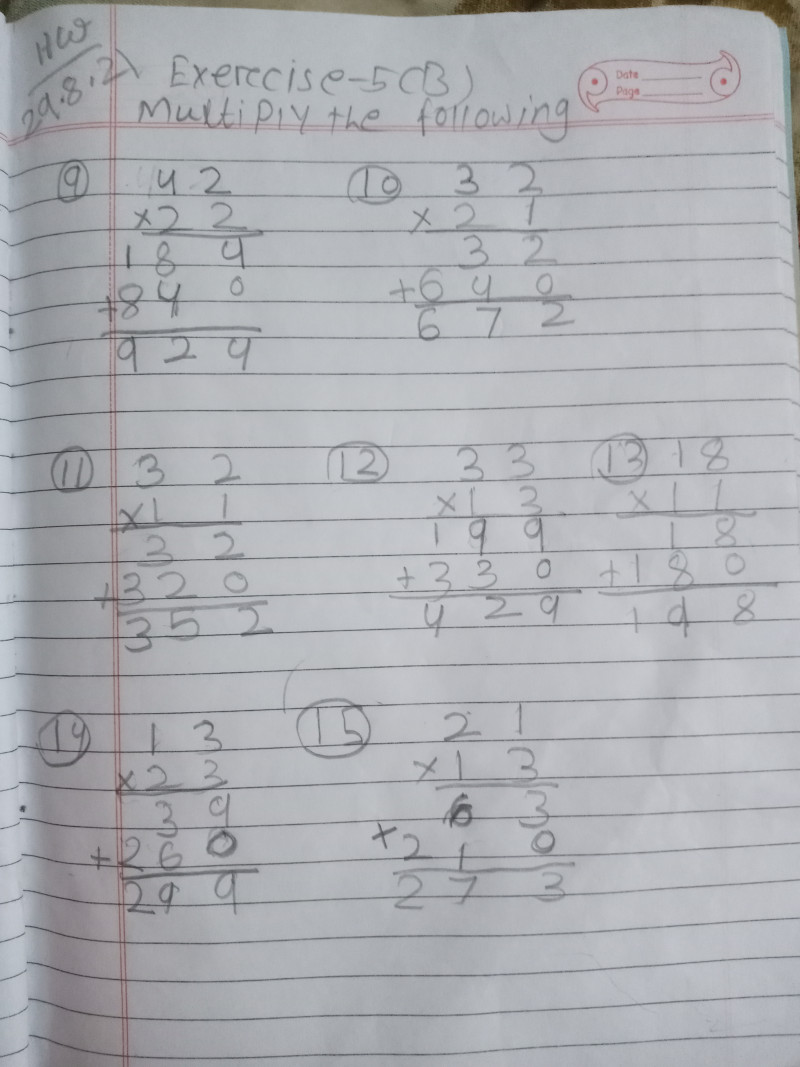 HW
29.8.21
Exercise-5(B)
Multiply the following
Date
Page
9 42
×22
184
+840
924
10 32
×21
32
+640
672
11 32
×11
32
+320
352
12 33
×13
199
+330
429
13 18
×11
18
+180
198
14 13
×23
39
+260
299
15 21
×13
63
+210
273